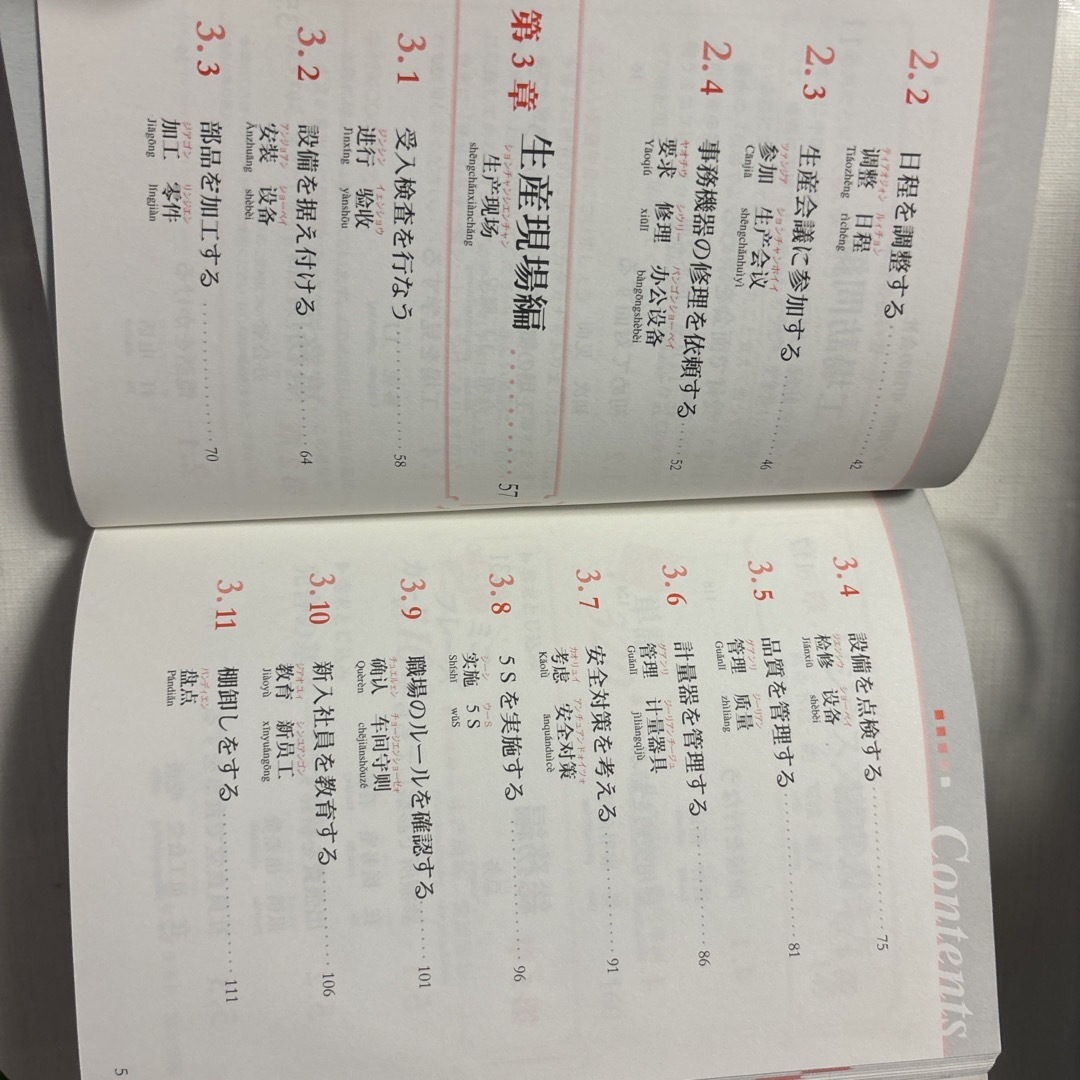 2.2 日程を調整する ………… 42
ティアオジョン ルィチョン
调整 日程
Tiáozhěng rìchéng
2.3 生産会議に参加する ………… 46
ツァンジア ションチャンホイイ
参加 生产会议
Cānjiā shēngchǎnhuìyì
2.4 事務機器の修理を依頼する …… 52
ヤオチウ シウリー バンゴンショーベイ
要求 修理 办公设备
Yāoqiú xiūlǐ bàngōngshèbèi
第3章 生産現場編 ………… 57
ションチャンシエンチャン
生产现场
shēngchǎnxiànchǎng
3.1 受入検査を行なう ………… 58
ジンシン イェンショウ
进行 验收
Jìnxíng yànshōu
3.2 設備を据え付ける ………… 64
アンジョアン ショーベイ
安装 设备
Ānzhuāng shèbèi
3.3 部品を加工する ………… 70
ジアゴン リンジエン
加工 零件
Jiāgōng língjiàn
Contents
3.4 設備を点検する ………… 75
ジエンシウ ショーベイ
检修 设备
Jiǎnxiū shèbèi
3.5 品質を管理する ………… 81
グアンリ ジーリアン
管理 质量
Guǎnlǐ zhìliàng
3.6 計量器を管理する ………… 86
グアンリ ジーリアンチージュ
管理 计量器具
Guǎnlǐ jìliàngqìjù
3.7 安全対策を考える ………… 91
カオリュイ アンチュアンドゥイツォ
考虑 安全对策
Kǎolǜ ānquánduìcè
3.8 5Sを実施する ………… 96
シーシ ウーS
实施 5S
Shíshī wǔS
3.9 職場のルールを確認する …… 101
チュエルェン チョージエンショーゼォ
确认 车间守则
Quèrèn chējiānshǒuzé
3.10 新入社員を教育する ………… 106
ジアオユィ シンユアンゴン
教育 新员工
Jiàoyù xīnyuángōng
3.11 棚卸しをする ………… 111
パンディエン
盘点
Pándiǎn
5